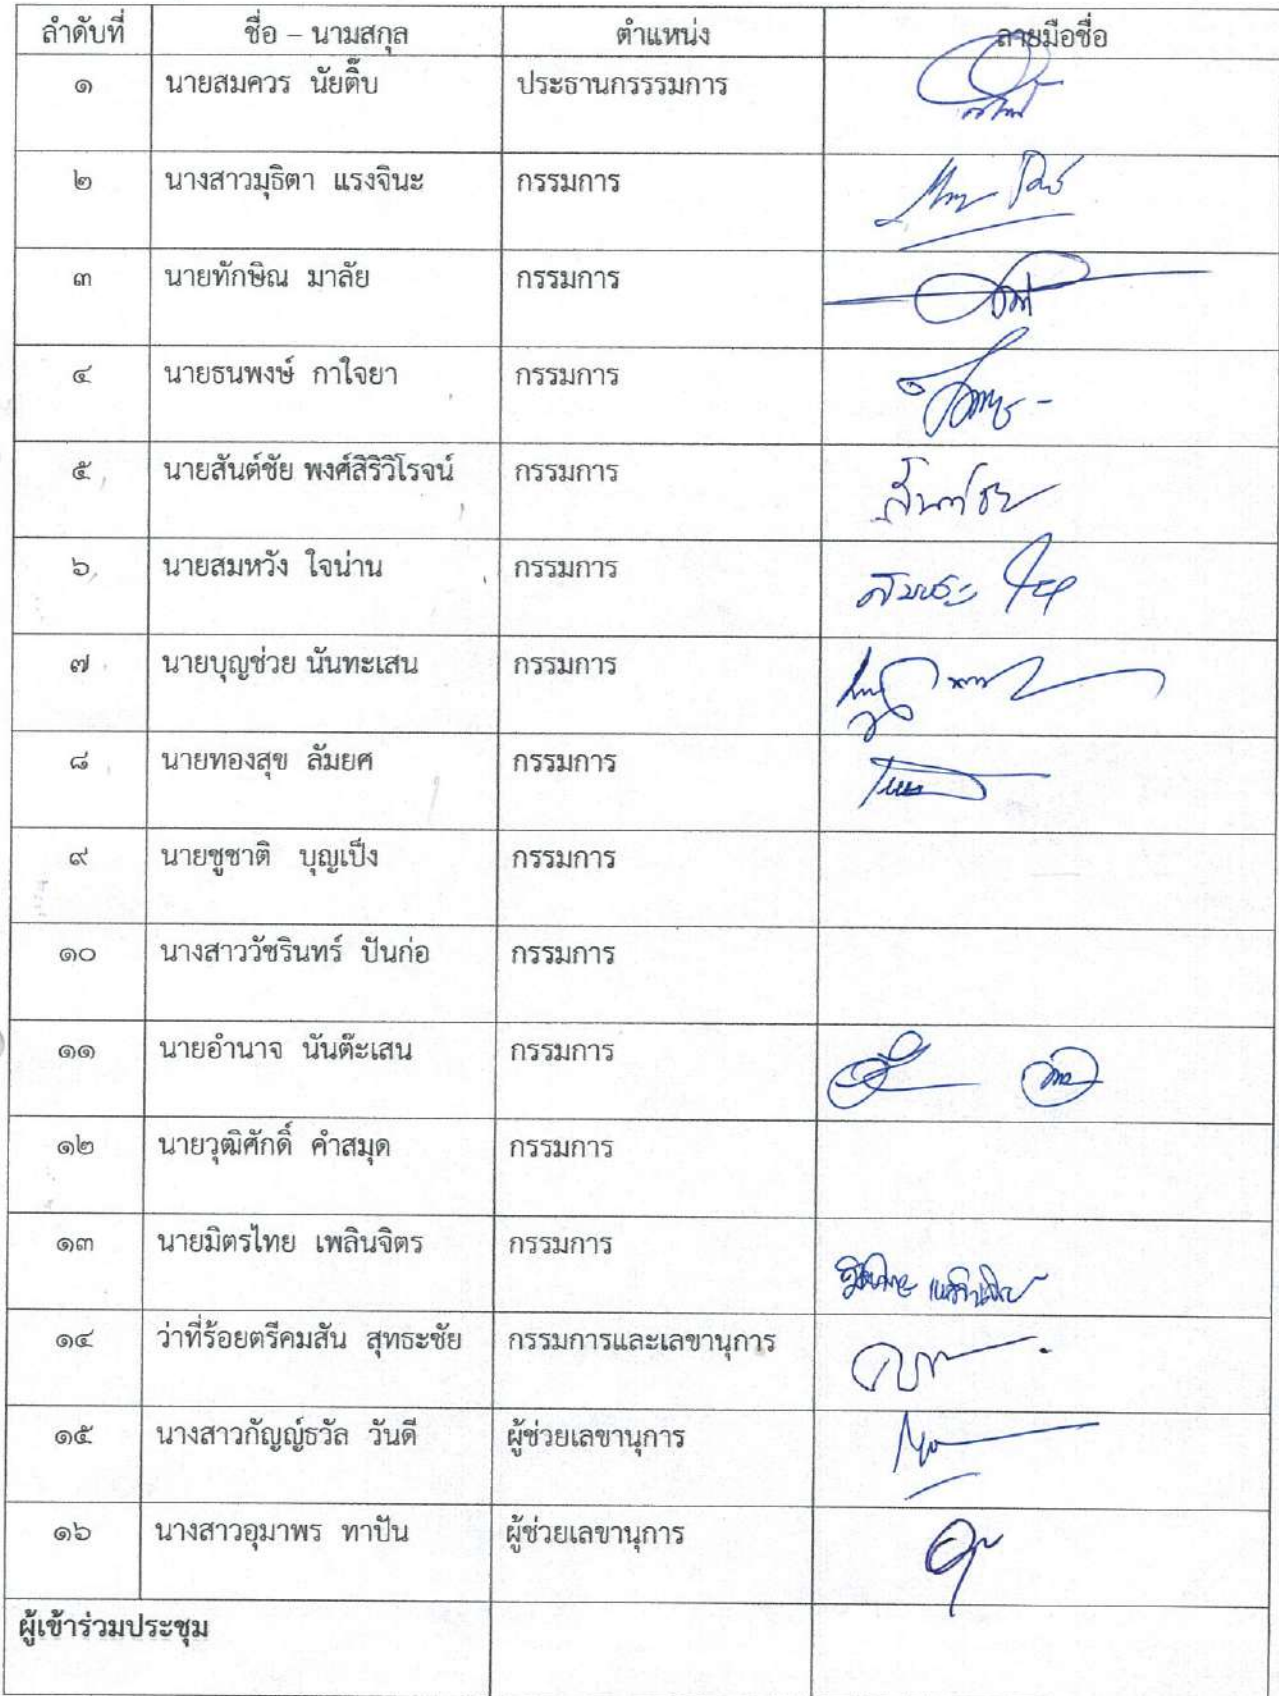 ลำดับที่ ชื่อ – นามสกุล ตำแหน่ง ลายมือชื่อ
๑ นายสมควร นัยติ๊บ ประธานกรรรมการ
๒ นางสาวมุธิตา แรงจินะ กรรมการ
๓ นายทักษิณ มาลัย กรรมการ
๔ นายธนพงษ์ กาใจยา กรรมการ
๕ นายสันต์ชัย พงศ์สิริวิโรจน์ กรรมการ
๖ นายสมหวัง ใจน่าน กรรมการ
๗ นายบุญช่วย นันทะเสน กรรมการ
๘ นายทองสุข ลัมยศ กรรมการ
๙ นายชูชาติ บุญเป็ง กรรมการ
๑๐ นางสาววัชรินทร์ ปันก่อ กรรมการ
๑๑ นายอำนาจ นันต๊ะเสน กรรมการ
๑๒ นายวุฒิศักดิ์ คำสมุด กรรมการ
๑๓ นายมิตรไทย เพลินจิตร กรรมการ
๑๔ ว่าที่ร้อยตรีคมสัน สุทธะชัย กรรมการและเลขานุการ
๑๕ นางสาวกัญญ์ธวัล วันดี ผู้ช่วยเลขานุการ
๑๖ นางสาวอุมาพร ทาปัน ผู้ช่วยเลขานุการ
ผู้เข้าร่วมประชุม